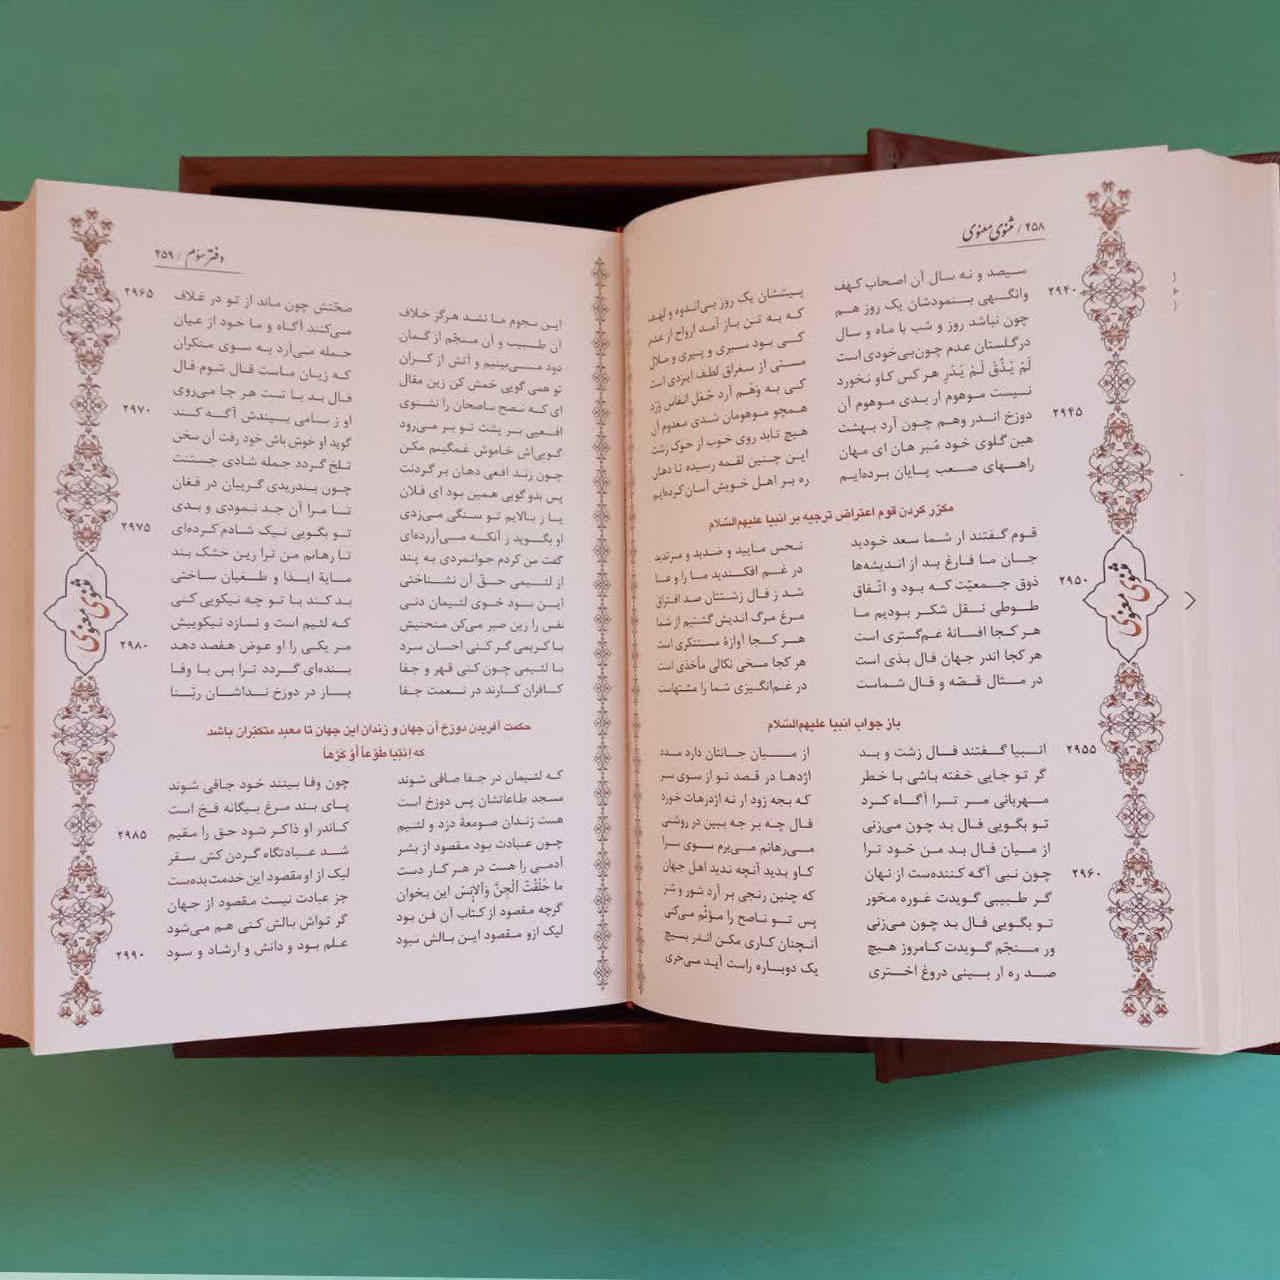 ۲۵۸ / مثنوی معنوی
سیصد و نه سال آن اصحاب کهف پیششان یک روز بی‌اندوه و لهف
۲۹۴۰ وانگهی بنمودشان یک روز هم که به تن باز آمد ارواح از عدم
چون نباشد روز و شب با ماه و سال کی بود سیری و پیری و ملال
در گلستان عدم چون بی‌خودی است مستی از سغراق لطف ایزدی است
لَمْ یَذُقْ لَمْ یَدْرِ هر کس کاو نخورد کی به وَهْم آرد جُعَل انفاس وَرْد
نیست موهوم ار بدی موهوم آن همچو موهومان شدی معدوم آن
۲۹۴۵ دوزخ اندر وهم چون آرد بهشت هیچ تابد روی خوب از خوک زشت
هین گلوی خود مَبُر هان ای مهان این چنین لقمه رسیده تا دهان
راههای صعب پایان برده‌ایم ره بر اهل خویش آسان کرده‌ایم
مکرّر کردن قوم اعتراض ترجیه بر انبیا علیهم‌السّلام
قوم گفتند ار شما سعد خودید نحس مایید و ضدید و مرتدید
جان ما فارغ بد از اندیشه‌ها در غم افکندید ما را و عنا
۲۹۵۰ ذوق جمعیّت که بود و اتّفاق شد ز فال زشتتان صد افتراق
طوطی نقل شکر بودیم ما مرغ مرگ اندیش گشتیم از شما
هر کجا افسانهٔ غم‌گستری است هر کجا آوازهٔ مستنکری است
هر کجا اندر جهان فال بذی است هر کجا مسخی نکالی مأخذی است
در مثال قصّه و فال شماست در غم‌انگیزی شما را مشتهاست
باز جواب انبیا علیهم‌السّلام
۲۹۵۵ انبیا گفتند فال زشت و بد از میان جانتان دارد مدد
گر تو جایی خفته باشی با خطر اژدها در قصد تو از سوی سر
مهربانی مر ترا آگاه کرد که بجه زود ار نه اژدرهات خورد
تو بگویی فال بد چون می‌زنی فال چه بر جه ببین در روشنی
از میان فال بد من خود ترا می‌رهانم می‌برم سوی سرا
۲۹۶۰ چون نبی آگه کننده‌ست از نهان کاو بدید آنچه ندید اهل جهان
گر طبیبی گویدت غوره مخور که چنین رنجی بر آرد شور و شر
تو بگویی فال بد چون می‌زنی پس تو ناصح را مؤثّم می‌کنی
ور منجّم گویدت کامروز هیچ آنچنان کاری مکن اندر بسیچ
صد ره ار بینی دروغ اختری یک دوباره راست آید می‌خری
مثنوی معنوی
دفتر سوّم / ۲۵۹
۲۹۶۵ این نجوم ما نشد هرگز خلاف صحّتش چون ماند از تو در غلاف
آن طبیب و آن منجّم از گمان می‌کنند آگاه و ما خود از عیان
دود می‌بینیم و آتش از کران حمله می‌آرد به سوی منکران
تو همی گویی خمش کن زین مقال که زیان ماست قال شوم فال
ای که نصح ناصحان را نشنوی فال بد با تست هر جا می‌روی
۲۹۷۰ افعیی بر پشت تو بر می‌رود او ز بامی بیندش آگه کند
گویی‌اش خاموش غمگینم مکن گوید او خوش باش خود رفت آن سخن
چون زند افعی دهان بر گردنت تلخ گردد جمله شادی جستنت
پس بدو گویی همین بود ای فلان چون بندریدی گریبان در فغان
یا ز بالایم تو سنگی می‌زدی تا مرا آن جد نمودی و بدی
۲۹۷۵ او بگوید ز آنکه می‌آزرده‌ای تو بگویی نیک شادم کرده‌ای
گفت من کردم جوانمردی به پند تا رهانم من ترا زین خشک بند
از لئیمی حقّ آن نشناختی مایهٔ ایذا و طغیان ساختی
این بود خوی لئیمان دنی بد کند با تو چه نیکویی کنی
نفس را زین صبر می‌کن منحنیش که لئیم است و نسازد نیکوییش
۲۹۸۰ با کریمی گر کنی احسان سزد مر یکی را او عوض هفصد دهد
با لئیمی چون کنی قهر و جفا بنده‌ای گردد ترا بس با وفا
کافران کارند در نعمت جفا باز در دوزخ نداشان ربّنا
حکمت آفریدن دوزخ آن جهان و زندان این جهان تا معبد متکبّران باشد
که اِئْتِیا طَوْعاً أوْ کَرْهاً
که لئیمان در جفا صافی شوند چون وفا بینند خود جافی شوند
مسجد طاعاتشان پس دوزخ است پای بند مرغ بیگانه فخ است
۲۹۸۵ هست زندان صومعهٔ دزد و لئیم کاندر او ذاکر شود حق را مقیم
چون عبادت بود مقصود از بشر شد عبادتگاه گردن کش سقر
آدمی را هست در هر کار دست لیک از او مقصود این خدمت بده‌ست
ما خَلَقْتُ الْجِنَّ وَالاِنْسَ این بخوان جز عبادت نیست مقصود از جهان
گرچه مقصود از کتاب آن فن بود گر تواش بالش کنی هم می‌شود
۲۹۹۰ لیک ازو مقصود این بالش نبود علم بود و دانش و ارشاد و سود
مثنوی معنوی